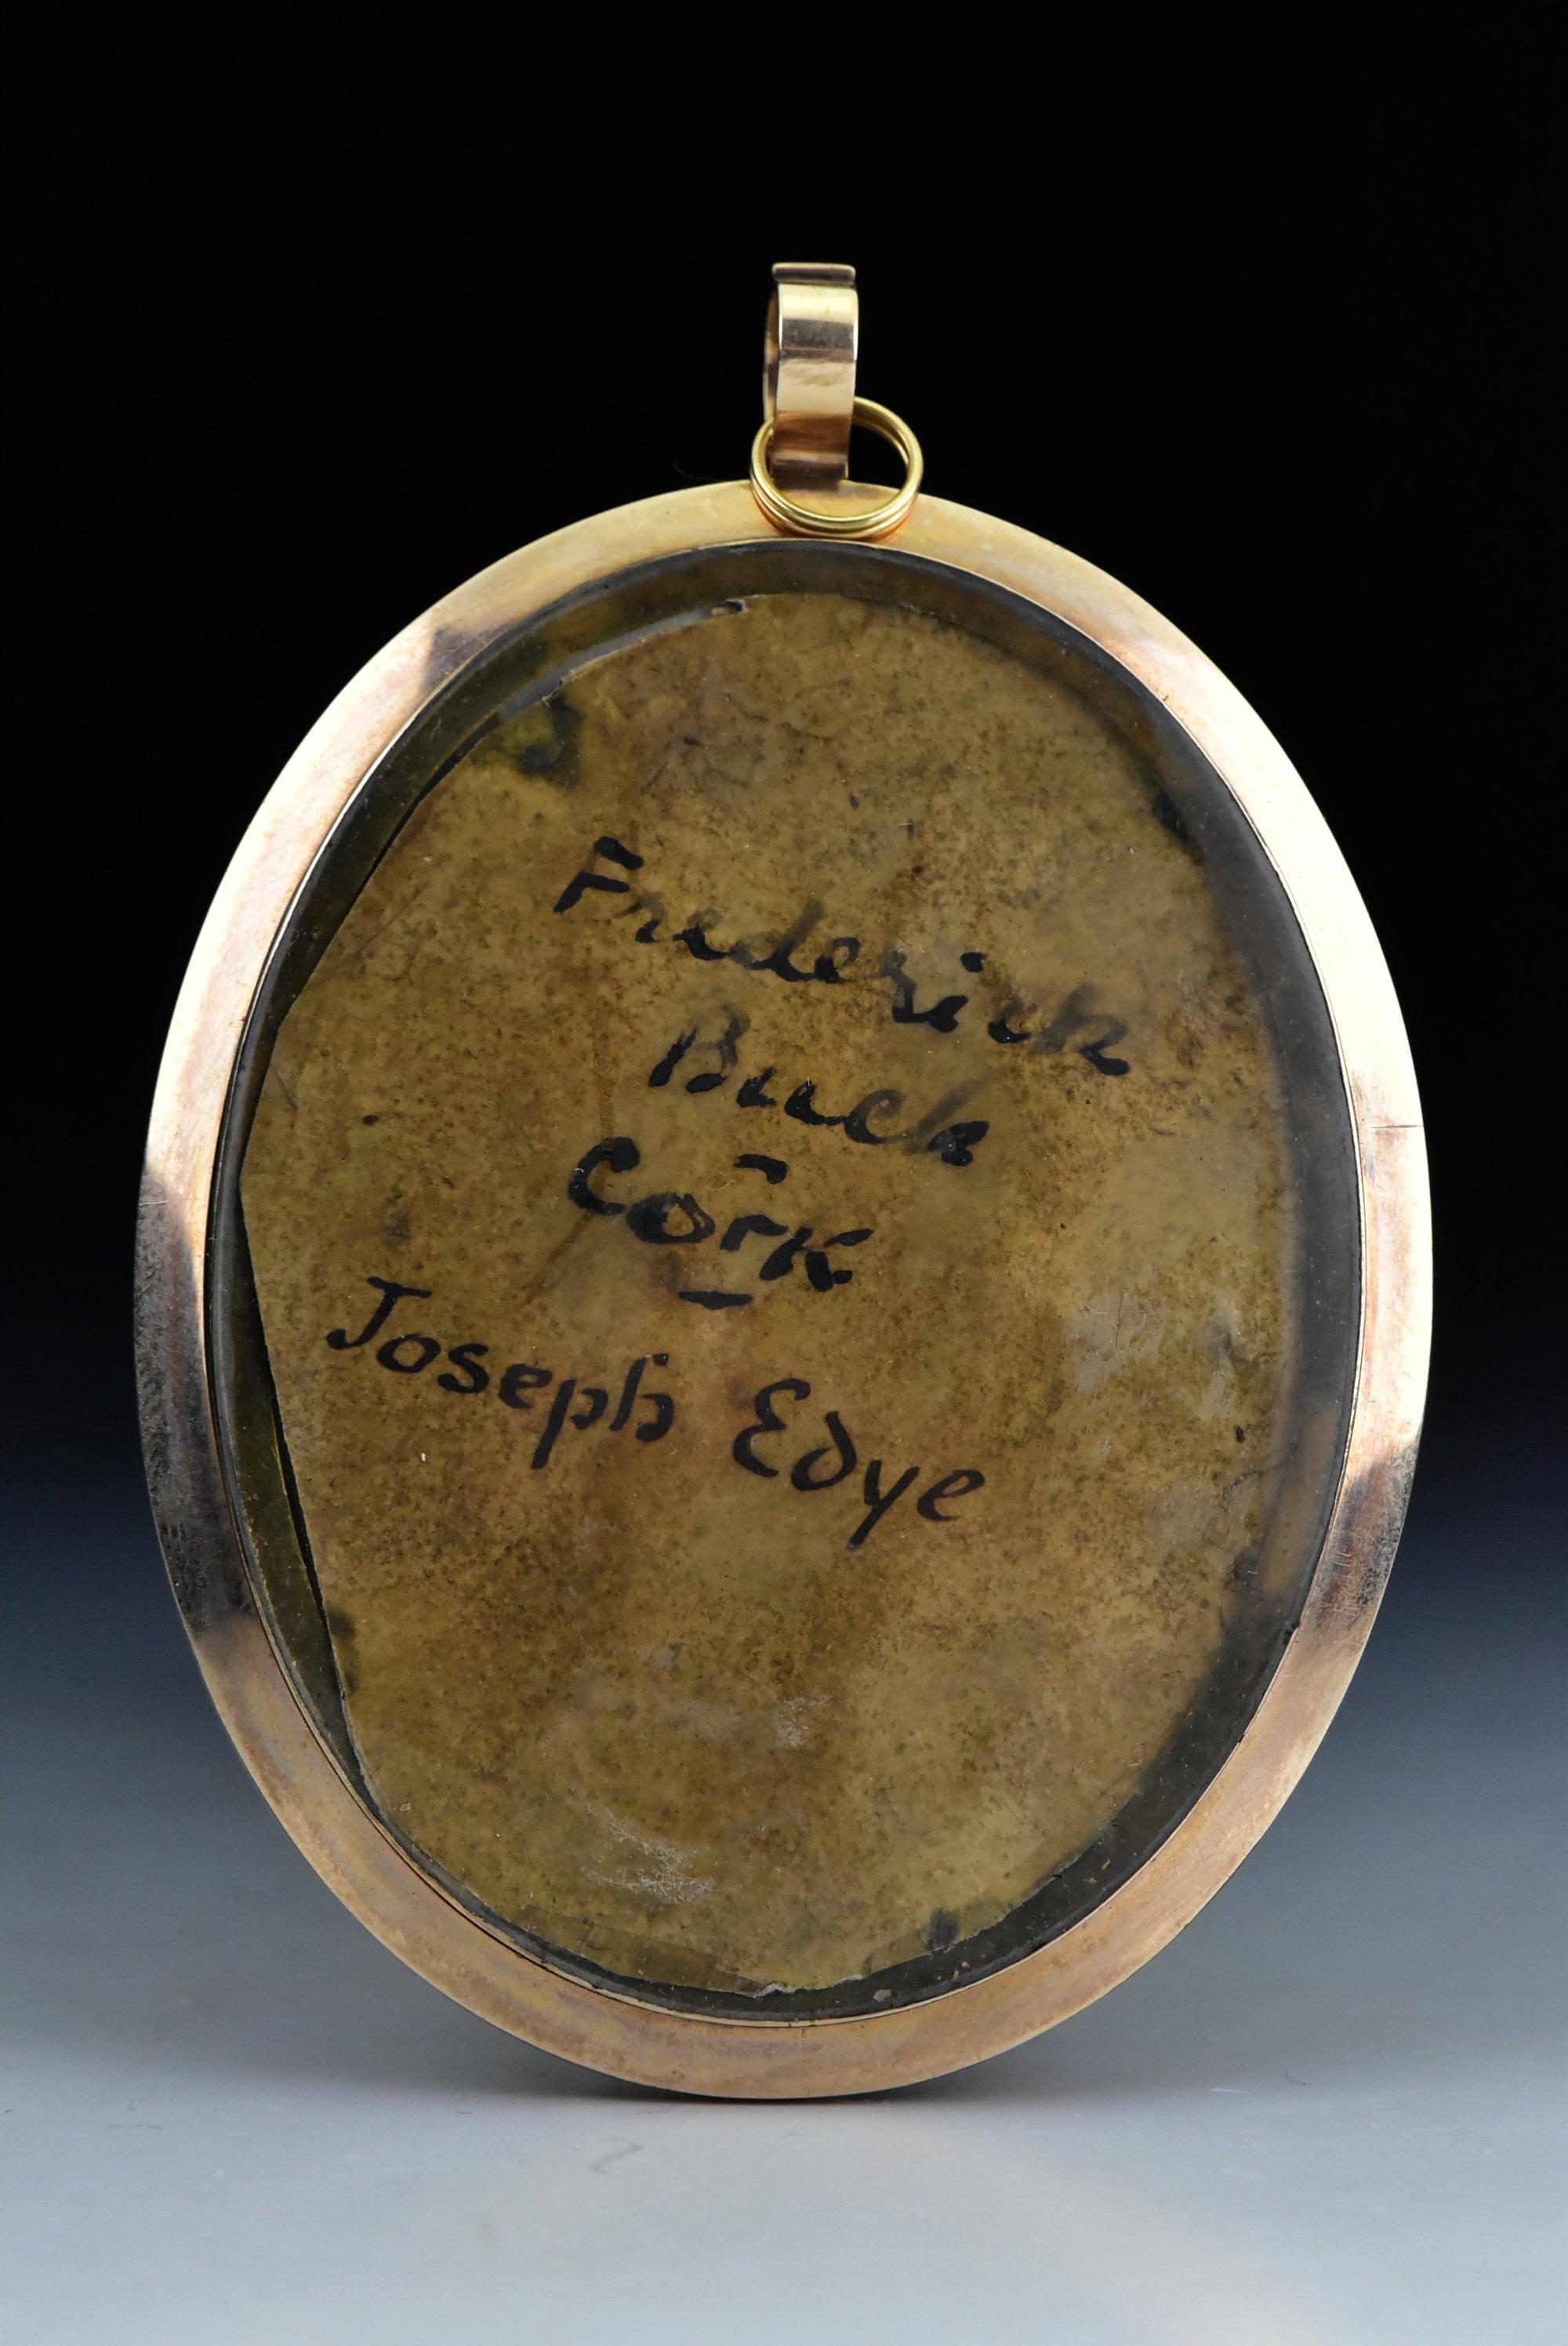 Frederick
Buck
Cork
Joseph Edye